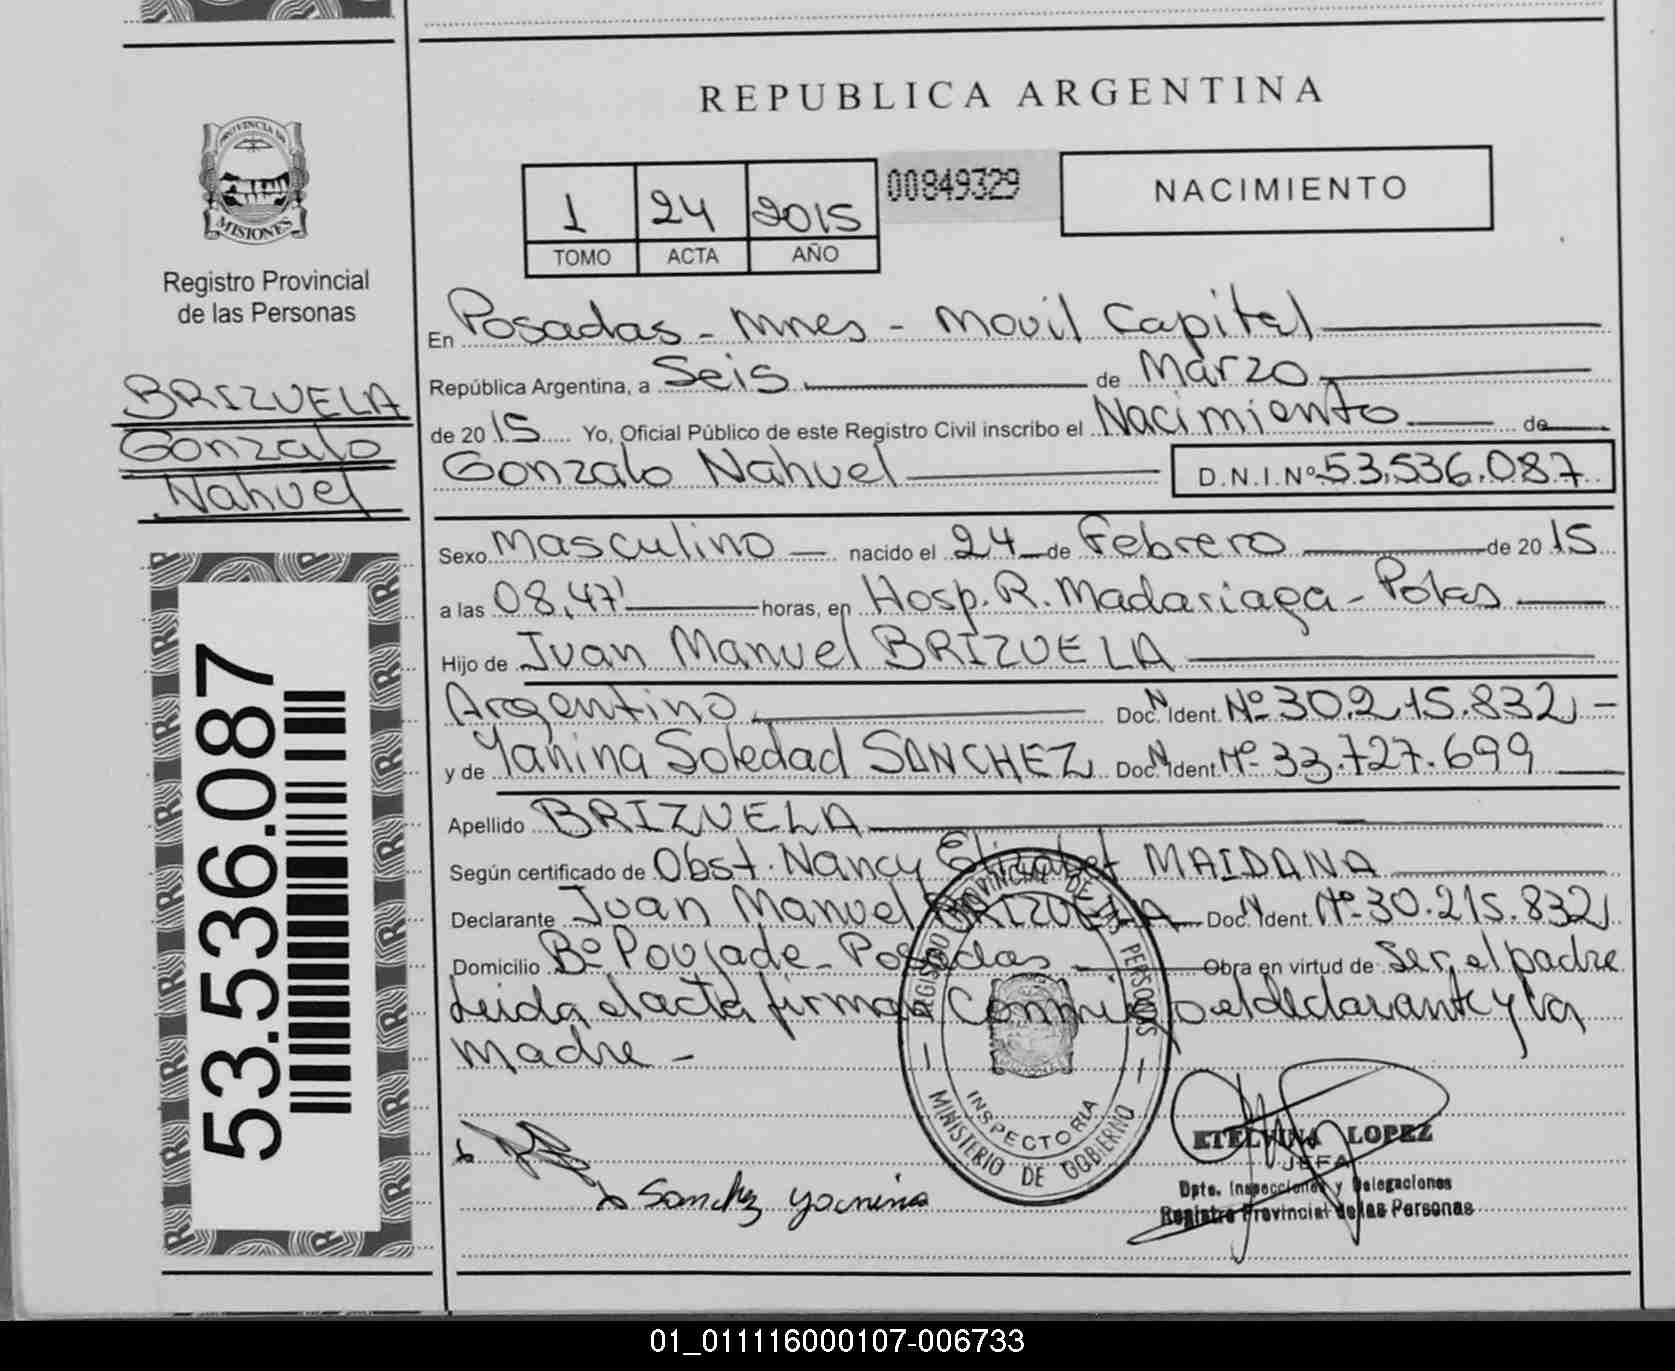 REPUBLICA ARGENTINA
PROVINCIA DE
MISIONES
Registro Provincial
de las Personas
1 24 2015
TOMO ACTA AÑO
00849329
NACIMIENTO
BRIZUELA
Gonzalo
Nahuel
53.536.087
En Posadas - Mnes - Movil Capital
República Argentina, a Seis de Marzo
de 2015 Yo, Oficial Público de este Registro Civil inscribo el Nacimiento de
Gonzalo Nahuel D.N.I.Nº 53.536.087
Sexo Masculino nacido el 24 de Febrero de 2015
a las 08,47' horas, en Hosp. R. Madariaga - Pdas
Hijo de Juan Manuel BRIZUELA
Argentino Doc. N Ident. Nº 30.215.832, -
y de Yanina Soledad SANCHEZ Doc. N Ident. Nº 33.727.699
Apellido BRIZUELA
Según certificado de Obst. Nancy Elizabet MAIDANA
Declarante Juan Manuel BRIZUELA Doc. N Ident. Nº 30.215.832,
Domicilio Bº Poujade - Posadas Obra en virtud de Ser el padre
Leida el acta firman Conmigo el declarante y la
madre -
REGISTRO PROVINCIAL DE LAS PERSONAS
INSPECTORIA
MINISTERIO DE GOBIERNO
Sanchez Yanina
ETELVINA LOPEZ
JEFA
Dpto. Inspecciones y Delegaciones
Registro Provincial de las Personas
01_011116000107-006733